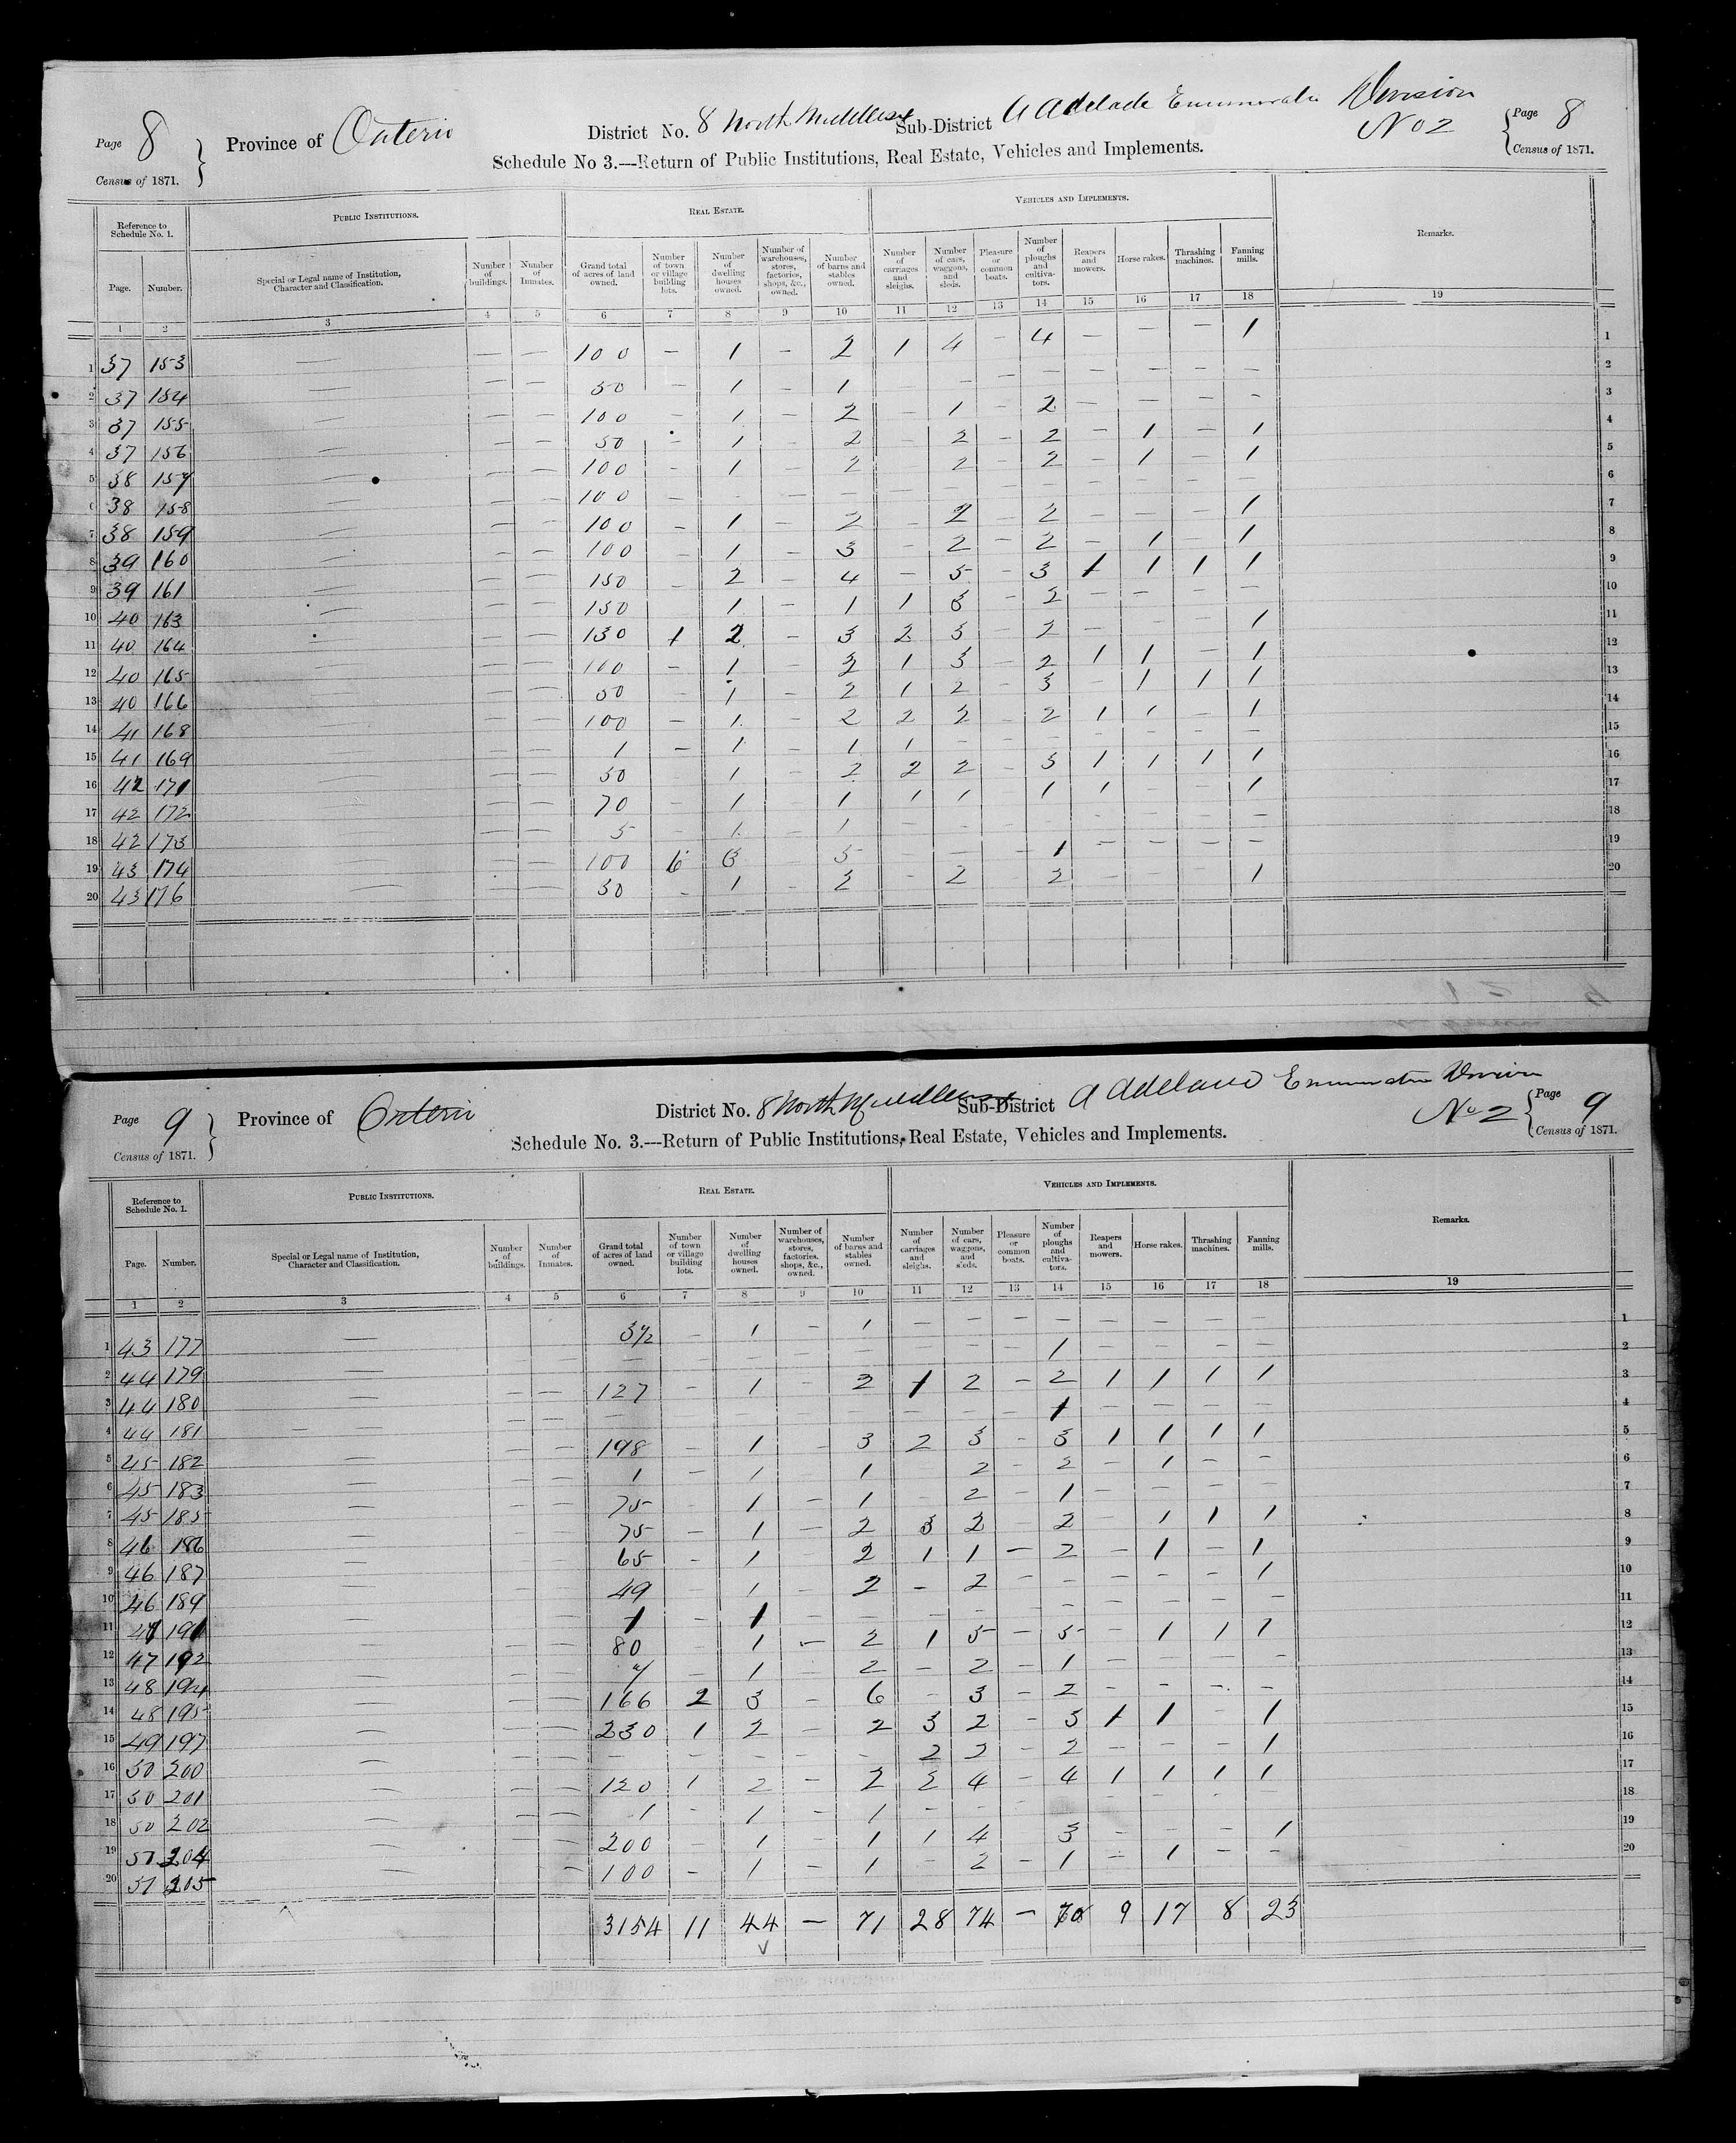 Page 8 Province of Ontario District No. 8 North Middlesex Sub-District a Adelade Enumeratin Division No 2 Page 8
Census of 1871. Census of 1871.
Schedule No 3.—Return of Public Institutions, Real Estate, Vehicles and Implements.
Reference to Schedule No. 1. PUBLIC INSTITUTIONS. REAL ESTATE. VEHICLES AND IMPLEMENTS. Remarks.
Page. Number. Special or Legal name of Institution, Character and Classification. Number of buildings. Number of Inmates. Grand total of acres of land owned. Number of town or village building lots. Number of dwelling houses owned. Number of warehouses, stores, factories, shops, &c., owned. Number of barns and stables owned. Number of carriages and sleighs. Number of cars, waggons, and sleds. Pleasure or common boats. Number of ploughs and cultivators. Reapers and mowers. Horse rakes. Thrashing machines. Fanning mills.
1 2 3 4 5 6 7 8 9 10 11 12 13 14 15 16 17 18 19
1 37 153 — — — 100 — 1 — 2 1 4 — 4 — — — 1 1
2 37 154 — — — 50 — 1 — 1 — — — — — — — — 2
3 37 155 — — — 100 — 1 — 2 — 1 — 2 — — — — 3
4 37 156 — — — 50 — 1 — 2 — 2 — 2 — 1 — 1 4
5 38 157 — — — 100 — 1 — 2 2 — 2 — 1 — 1 5
6 38 158 — — — 100 — — — — — — — — — — — — 6
7 38 159 — — — 100 — 1 — 2 — 2 — 2 — — — 1 7
8 39 160 — — — 100 — 1 — 3 — 2 — 2 — 1 — 1 8
9 39 161 — — — 150 — 2 — 4 — 5 — 3 1 1 1 1 9
10 40 163 — — — 150 1 — 1 1 3 — 2 — — — — 10
11 40 164 — — — 130 1 2 — 3 2 3 — 2 — — — 1 11
12 40 165 — — — 100 — 1 2 1 3 — 2 1 1 — 1 12
13 40 166 — — — 50 — 1 — 2 1 2 — 3 — 1 1 1 13
14 41 168 — — — 100 — 1 — 2 2 2 — 2 1 1 — 1 14
15 41 169 — — — 1 — 1 — 1 1 — — — — — — — 15
16 42 171 — — — 50 1 — 2 2 2 — 3 1 1 1 1 16
17 42 172 — — — 70 — 1 1 1 1 1 1 — — 1 17
18 42 173 — — — 5 — 1 — 1 — — — — — — — 18
19 43 174 — — — 100 6 3 5 — — 1 — — — — 19
20 43 176 — — — 50 — 1 — 2 — 2 2 — — — 1 20
Page 9 Province of Ontario District No. 8 North Middlesex Sub-District a Adelaid Enumeration Division No 2 Page 9
Census of 1871. Census of 1871.
Schedule No. 3.—Return of Public Institutions, Real Estate, Vehicles and Implements.
Reference to Schedule No. 1. PUBLIC INSTITUTIONS. REAL ESTATE. VEHICLES AND IMPLEMENTS. Remarks.
Page. Number. Special or Legal name of Institution, Character and Classification. Number of buildings. Number of Inmates. Grand total of acres of land owned. Number of town or village building lots. Number of dwelling houses owned. Number of warehouses, stores, factories, shops, &c., owned. Number of barns and stables owned. Number of carriages and sleighs. Number of cars, waggons, and sleds. Pleasure or common boats. Number of ploughs and cultivators. Reapers and mowers. Horse rakes. Thrashing machines. Fanning mills.
1 2 3 4 5 6 7 8 9 10 11 12 13 14 15 16 17 18 19
1 43 177 — — 1 — 1 — — — — — — — — 1
2 44 179 — — — — — — — 1 — — — — 2
3 44 180 — — — 127 — 1 — 2 1 2 — 2 1 1 1 1 3
4 44 181 — — — — — — — — — — 1 — — — — 4
5 45 182 — — — 198 — 1 — 3 2 3 — 3 1 1 1 1 5
6 45 183 — — — 1 — 1 1 2 — 2 — 1 — — 6
7 45 185 — — — 75 1 — 1 2 — 1 — — — — 7
8 46 186 — — — 75 — 1 — 2 3 2 — 2 — 1 1 1 8
9 46 187 — — — 65 — 1 2 1 1 — 2 — 1 — 1 9
10 46 189 — — — 49 — 1 — 2 — 2 — — — — — 1 10
11 47 191 — — — 1 — 1 — — — — — — — — — 11
12 47 192 — — — 80 — 1 — 2 1 5 — 5 — 1 1 1 12
13 48 194 — — — — 1 2 — 2 — 1 — — — — 13
14 48 195 — — — 166 2 3 — 6 — 3 — 2 — — — — 14
15 49 197 — — — 230 1 2 — 2 3 2 — 3 1 1 — 1 15
16 50 200 — — — — — — — — 2 2 — 2 — — — 1 16
17 50 201 — — — 150 1 2 — 2 2 4 — 4 1 1 1 1 17
18 50 202 — — — 1 — 1 — 1 — — — — — — — 18
19 51 204 — — — 200 — 1 — 1 1 4 3 — — — 1 19
20 51 205 — — 100 — 1 — 1 — 2 — 1 — 1 — — 20
3154 11 44 — 71 28 74 — 9 17 8 23